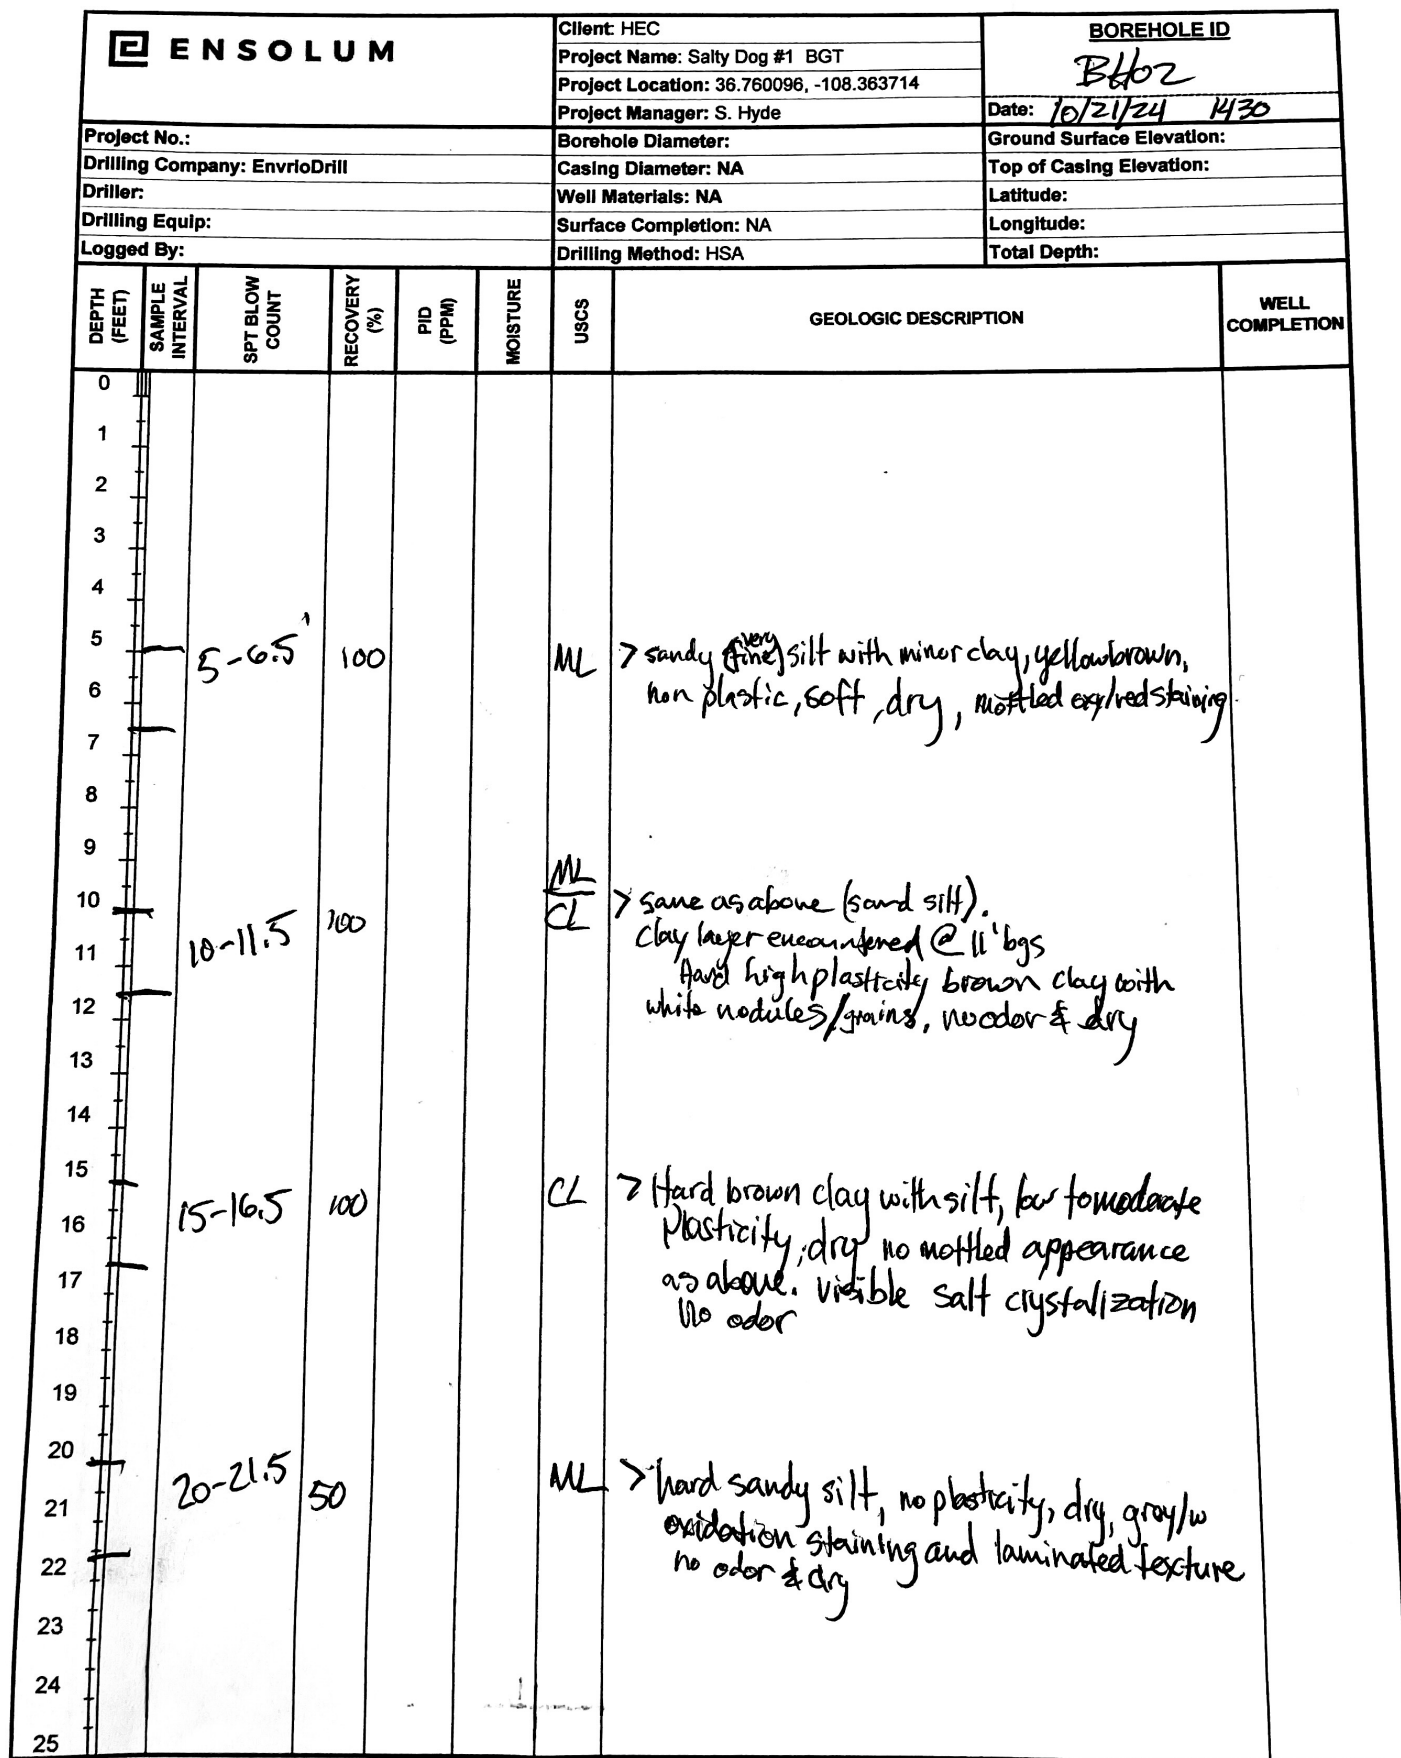 ENSOLUM
Client: HEC
Project Name: Salty Dog #1 BGT
Project Location: 36.760096, -108.363714
Project Manager: S. Hyde
BOREHOLE ID
BH02
Date: 10/21/24 1430
Project No.:
Drilling Company: EnvrioDrill
Driller:
Drilling Equip:
Logged By:
Borehole Diameter:
Casing Diameter: NA
Well Materials: NA
Surface Completion: NA
Drilling Method: HSA
Ground Surface Elevation:
Top of Casing Elevation:
Latitude:
Longitude:
Total Depth:
DEPTH (FEET)
SAMPLE INTERVAL
SPT BLOW COUNT
RECOVERY (%)
PID (PPM)
MOISTURE
USCS
GEOLOGIC DESCRIPTION
WELL COMPLETION
0
1
2
3
4
5
5-6.5' 100 ML > sandy (very fine) silt with minor clay, yellowbrown,
6
non plastic, soft, dry, mottled /red staining
7
8
9
ML
10
CL > same as above (sand silt).
10-11.5 100 clay layer encountered @ 11' bgs
11
Hard high plasticity brown clay with
12
white nodules/grains, no odor & dry
13
14
15
15-16.5 100 CL > Hard brown clay with silt, low to moderate
16
Plasticity, dry no mottled appearance
17
as above. visible salt crystalization
No odor
18
19
20
20-21.5 50 ML > hard sandy silt, no plasticity, dry, gray/w
21
oxidation staining and laminated texture
22
no odor & dry
23
24
25